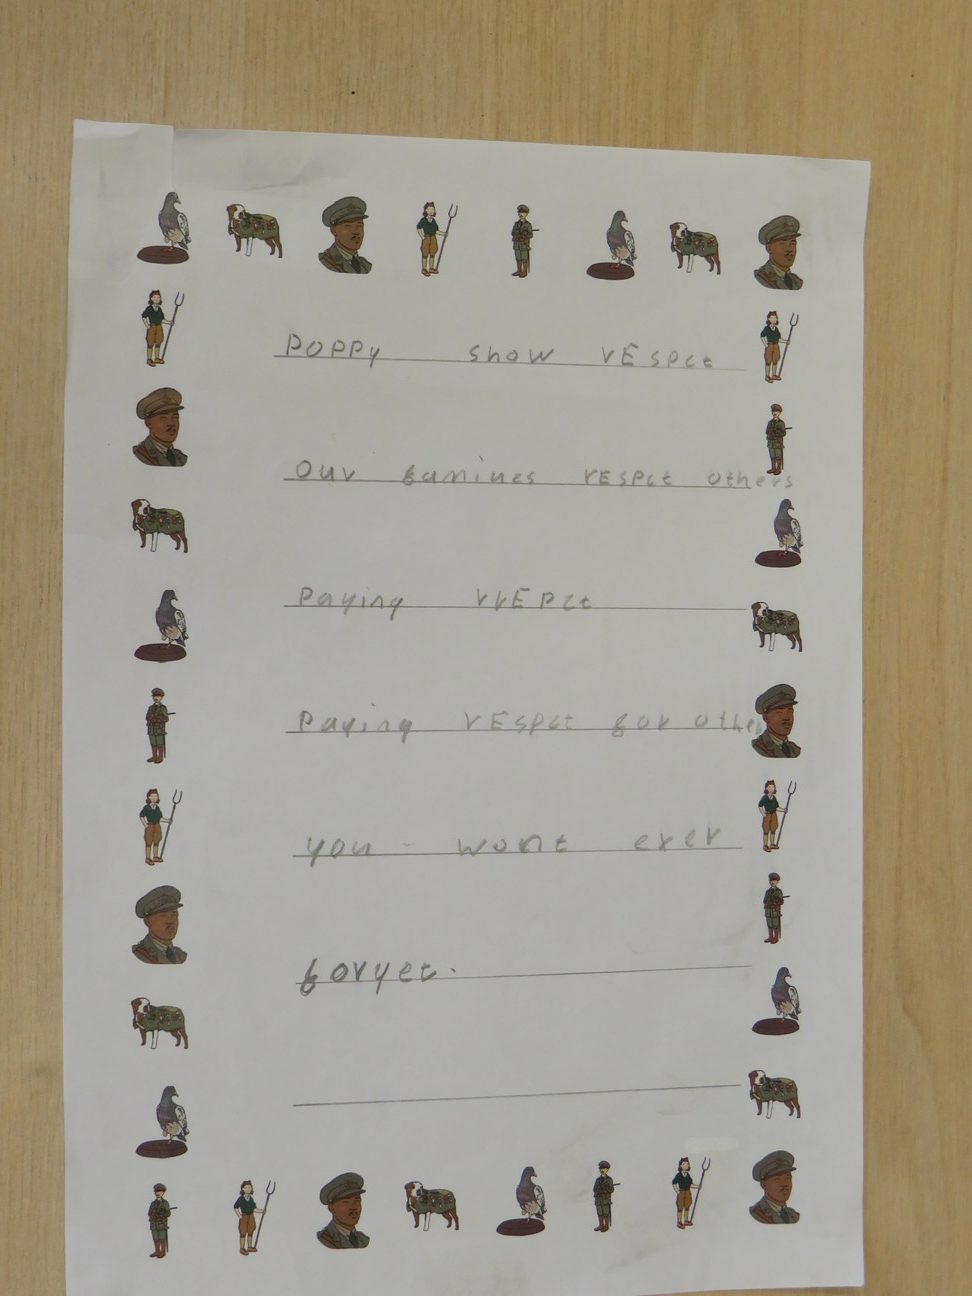 poppy show rEspct
our famines rEspct others
paying rrEpct
paying rEspct for other
you wont ever
forget.